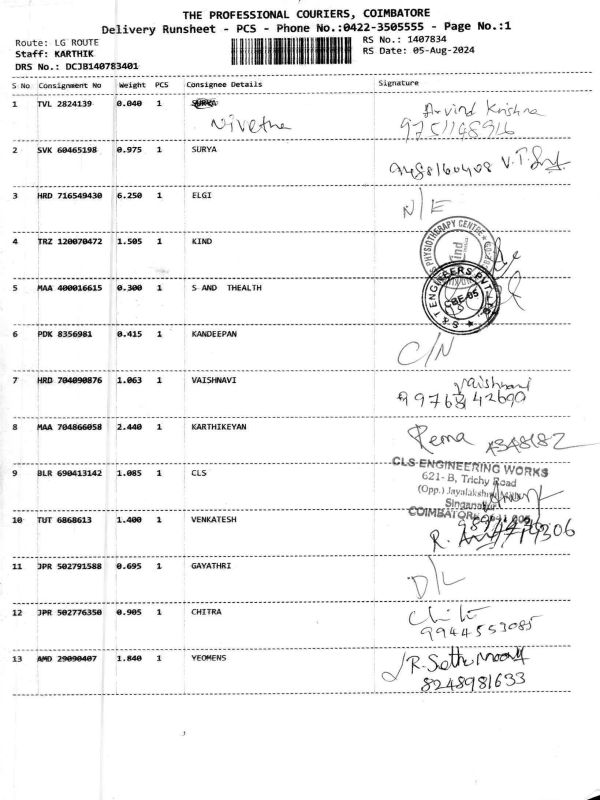 THE PROFESSIONAL COURIERS, COIMBATORE
Delivery Runsheet - PCS - Phone No.:0422-3505555 - Page No.:1
Route: LG ROUTE RS No.: 1407834
Staff: KARTHIK RS Date: 05-Aug-2024
DRS No.: DCJB140783401
S No Consignment No Weight PCS Consignee Details Signature
1 TVL 2824139 0.040 1 SURYA Arvind Krishna
Nivetha 9751148916
2 SVK 60465198 0.975 1 SURYA
9488160408 V.T.
3 HRD 716549430 6.250 1 ELGI N/E
PHYSIOTHERAPY CENTRE
4 TRZ 120070472 1.505 1 KIND
5 MAA 400016615 0.300 1 S AND THEALTH
S & T ENGINEERS PVT. LTD.
CBE-05
6 PDK 8356981 0.415 1 KANDEEPAN C/N
7 HRD 704090876 1.063 1 VAISHNAVI Vaishnavi
9976842690
8 MAA 704866058 2.440 1 KARTHIKEYAN Rema
CLS ENGINEERING WORKS
9 BLR 690413142 1.085 1 CLS 621- B, Trichy Road
(Opp.) Jayalakshmi
Singanallur
COIMBATORE
10 TUT 6868613 1.400 1 VENKATESH R.
11 JPR 502791588 0.695 1 GAYATHRI D/L
12 JPR 502776350 0.905 1 CHITRA Chitra
9944553085
13 AMD 29090407 1.840 1 YEOMENS R. Sethu
8248981633